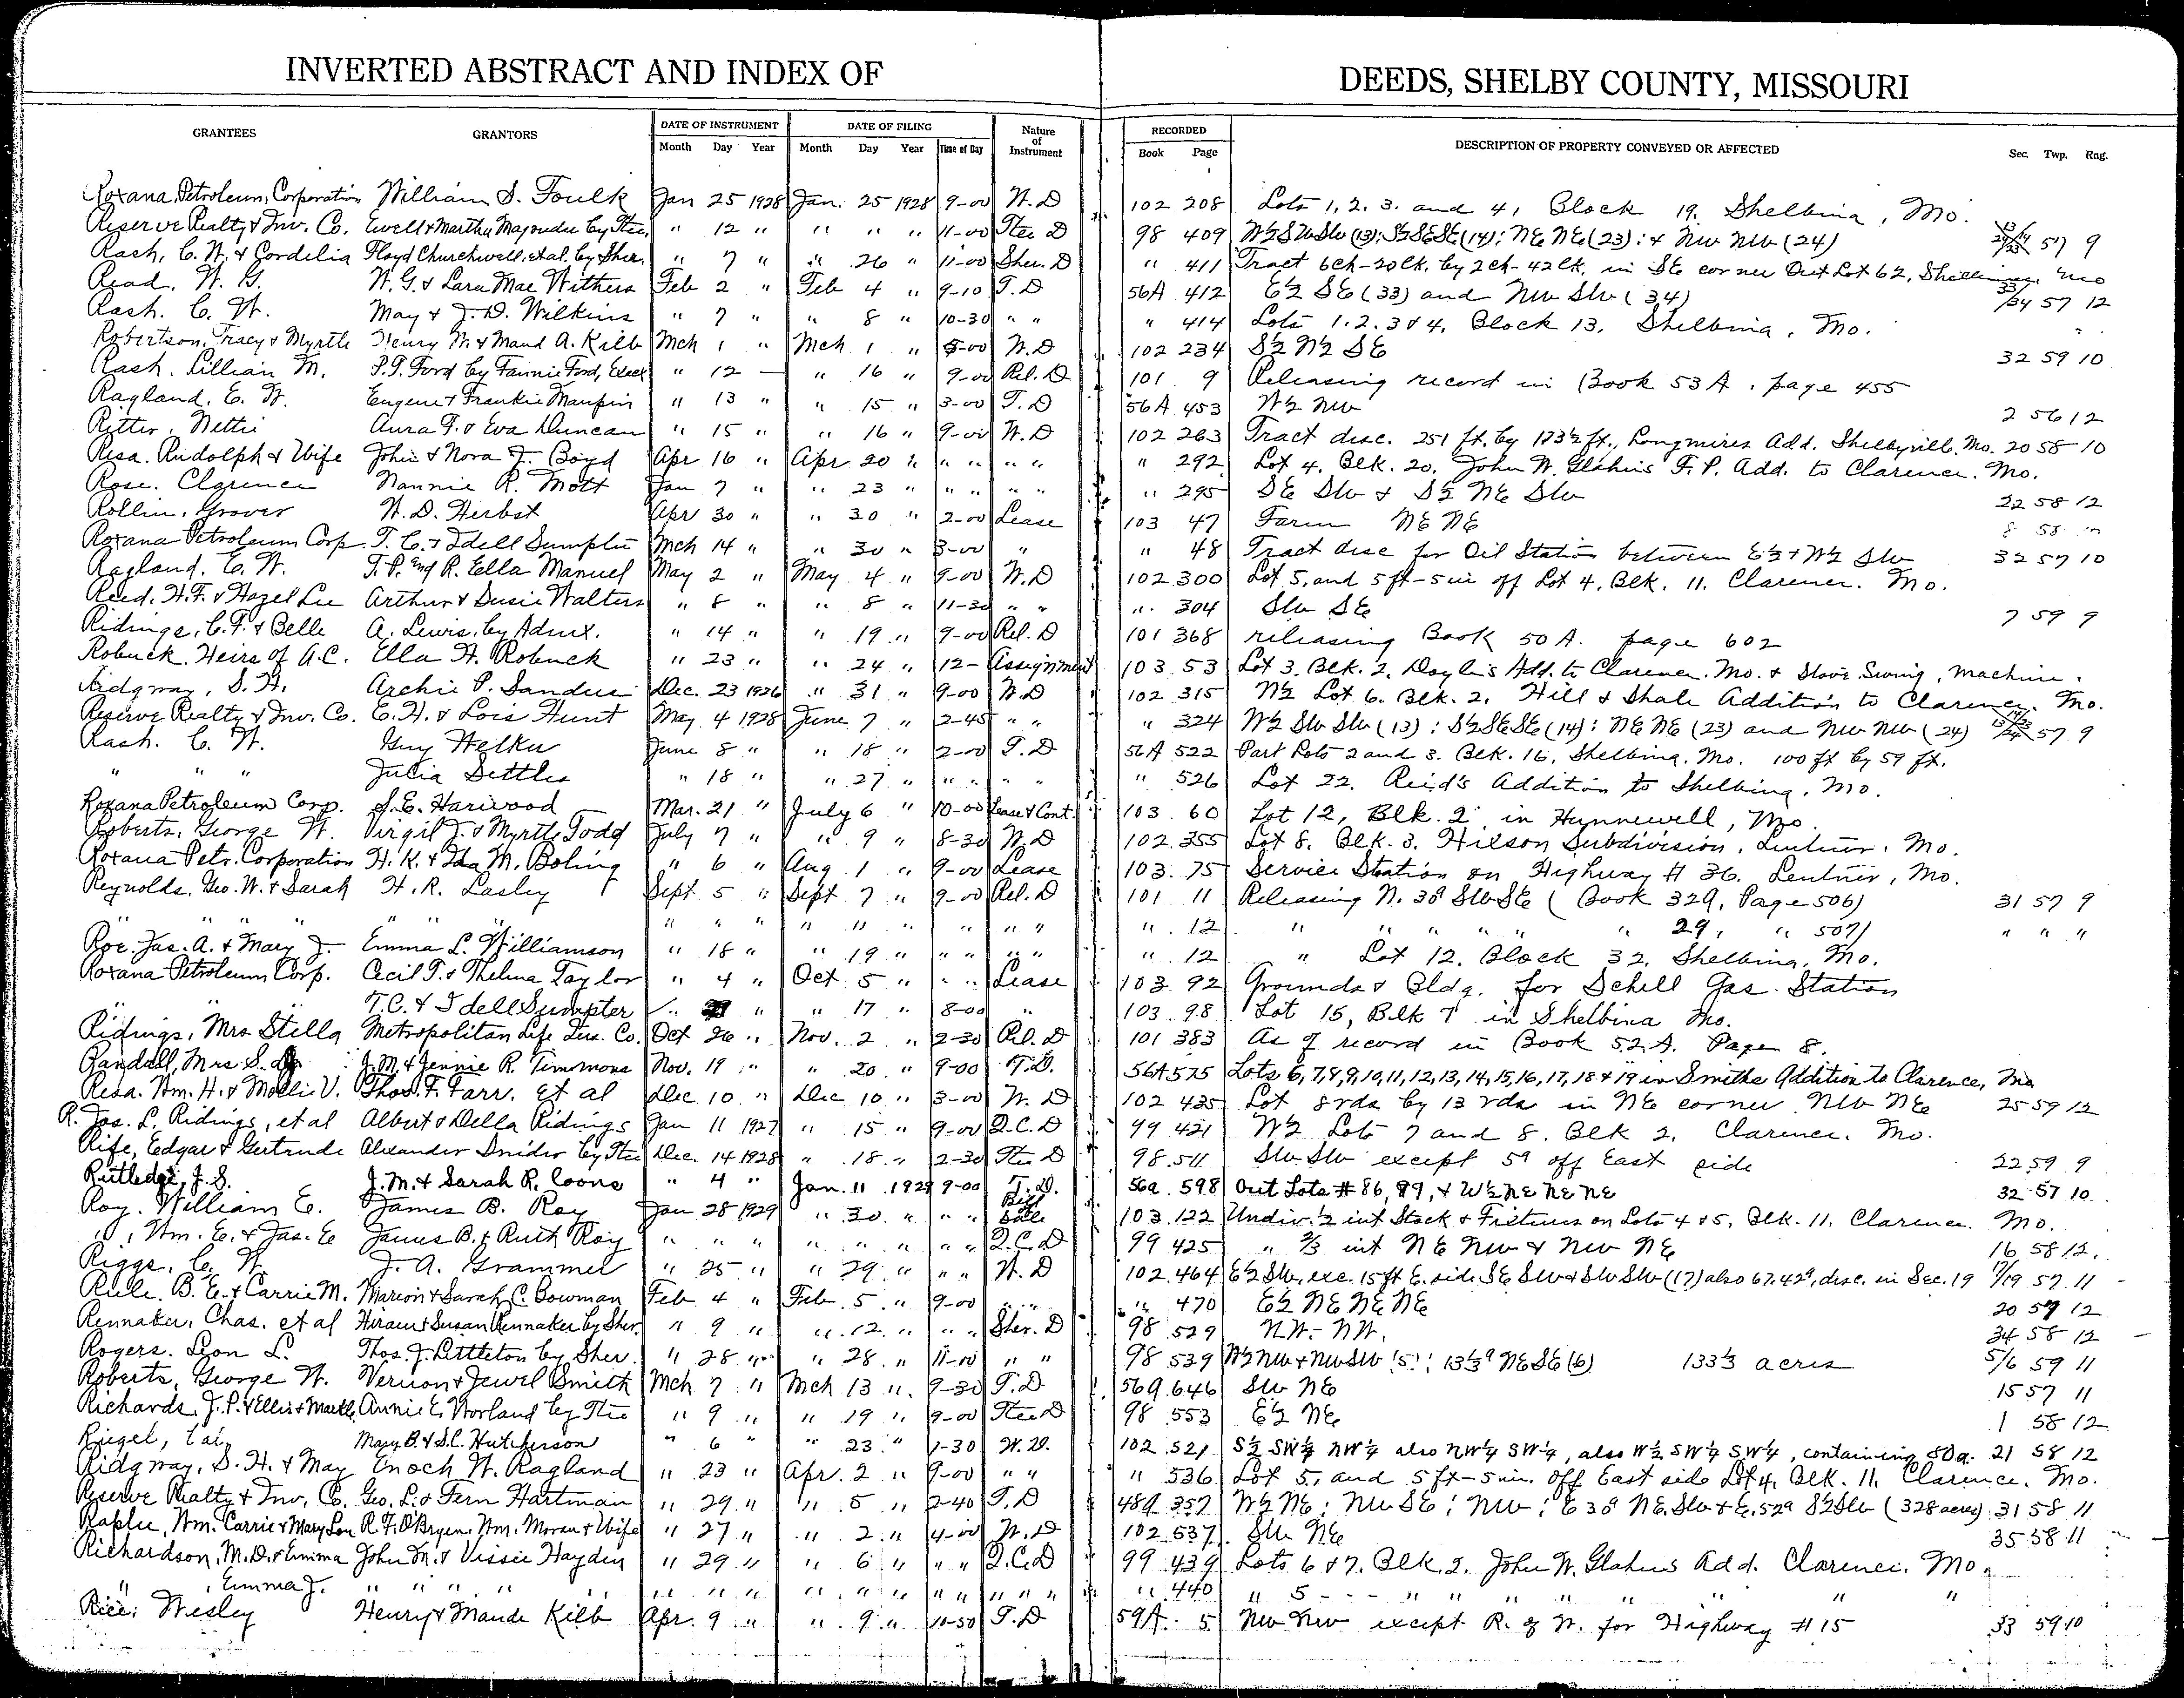 INVERTED ABSTRACT AND INDEX OF DEEDS, SHELBY COUNTY, MISSOURI
GRANTEES GRANTORS DATE OF INSTRUMENT DATE OF FILING Nature of Instrument RECORDED DESCRIPTION OF PROPERTY CONVEYED OR AFFECTED Sec. Twp. Rng.
Month Day Year Month Day Year Time of Day Book Page
Roxana Petroleum Corporation William S. Foulk Jan 25 1928 Jan. 25 1928 9-00 W.D 102 208 Lots 1, 2, 3, and 4, Block 19, Shelbina, Mo.
Reserve Realty & Inv. Co. Ewell & Martha Magruder by Stee. " 12 " " " " 11-00 Stee D 98 409 W½ SW SW (13); S½ SE SE (14); NE NE (23); & NW NW (24) 57 9
Rash, C. W. & Cordelia Floyd Churchwell, et al. by Sher. " 7 " " 26 " 11-00 Sher. D " 411 Tract 6ch-20lk. by 2ch-42lk. in SE corner Out Lot 62, Shelbina, Mo
Read, W. G. W. G. & Lara Mae Withers Feb 2 " Feb 4 " 9-10 T.D 56A 412 E½ SE (33) and NW SW (34) 33/34 57 12
Rash, C. W. May & J. D. Wilkins " 7 " " 8 " 10-30 " " " 414 Lots 1. 2. 3 & 4, Block 13, Shelbina, Mo.
Robertson, Tracy & Myrtle Henry W. & Maud A. Kilb Mch 1 " Mch 1 " 5-00 W.D 102 234 S½ N½ SE 32 59 10
Rash, Lillian M. P. T. Ford by Fannie Ford, Exec " 12 — " 16 " 9-00 Rel. D 101 9 Releasing record in Book 53A, page 455
Ragland, E. W. Eugene & Frankie Maupin " 13 " " 15 " 3-00 T.D 56A 453 W½ NW 2 56 12
Ritter, Nettie Aura F. & Eva Duncan " 15 " " 16 " 9-00 W.D 102 263 Tract desc. 251 ft. by 173½ ft., Longmires Add. Shelbyville, Mo. 20 58 10
Resa, Rudolph & Wife John & Nora J. Boyd Apr 16 " Apr 20 " " " " " " 292 Lot 4, Blk. 20, John W. Glahns F. P. Add. to Clarence, Mo.
Rose, Clarence Nannie R. Mott Jan 7 " " 23 " " " " " " 295 SE SW & S½ NE SW 22 58 12
Rollin, Grover W. D. Herbst Apr 30 " " 30 " 2-00 Lease 103 47 Farm NE NE 8 58
Roxana Petroleum Corp. T. C. & Idell Sumpter Mch 14 " " 30 " 3-00 " " 48 Tract desc for Oil Station between E½ & W½ SW 32 57 10
Ragland, E. W. T. P. and R. Ella Manuel May 2 " May 4 " 9-00 W.D 102 300 Lot 5, and 5 ft-5 in off Lot 4, Blk. 11, Clarence, Mo.
Reed, H. F. & Hazel Lee Arthur & Susie Walters " 8 " " 8 " 11-30 " " " 304 SW SE 7 59 9
Ridings, C. F. & Belle A. Lewis, by Admx. " 14 " " 19 " 9-00 Rel. D 101 368 releasing Book 50A. page 602
Robuck, Heirs of A.C. Ella H. Robuck " 23 " " 24 " 12- Assignment 103 53 Lot 3, Blk. 2, Doyle's Add. to Clarence, Mo. & Stove, Sewing, machine.
Ridgway, S. H. Archie P. Sanders Dec. 23 1926 " 31 " 9-00 W.D 102 315 N½ Lot 6, Blk. 2, Hill & Shale Addition to Clarence, Mo.
Reserve Realty & Inv. Co. E. H. & Lois Hunt May 4 1928 June 7 " 2-45 " " " 324 W½ SW SW (13); S½ SE SE (14); NE NE (23) and NW NW (24) 57 9
Rash, C. W. Guy Welker June 8 " " 18 " 2-00 T.D 56A 522 Part Lots 2 and 3, Blk. 16, Shelbina, Mo. 100 ft by 59 ft.
" " " Julia Settles " 18 " " 27 " " " " " " 526 Lot 22, Reid's Addition to Shelbina, Mo.
Roxana Petroleum Corp. S. E. Harwood Mar. 21 " July 6 " 10-00 Lease & Cont. 103 60 Lot 12, Blk. 2 in Hunnewell, Mo
Roberts, George W. Virgil J. & Myrtle Todd July 7 " " 9 " 8-30 W.D 102 355 Lot 8, Blk. 3, Hilson Subdivision, Lentner, Mo.
Roxana Petr. Corporation H. K. & Ida M. Boling " 6 " Aug. 1 " 9-00 Lease 103 75 Service Station on Highway # 36, Lentner, Mo.
Reynolds, Geo. W. & Sarah H. R. Lasley Sept 5 " Sept 7 " 9-00 Rel. D 101 11 Releasing N. 30a SW SE (Book 329, Page 506) 31 57 9
" " " " " " " " " " " " " " " " " " 12 " " " " " " 29, " 507) " " "
Roe, Jas. A. & Mary J. Emma L. Williamson " 18 " " 19 " " " " " " 12 " Lot 12, Block 32, Shelbina, Mo.
Roxana Petroleum Corp. Cecil T. & Thelma Taylor " 4 " Oct 5 " " " Lease 103 92 Grounds & Bldg. for Schell Gas Station
" " " T.C. & Idell Sumpter " " 17 " 8-00 " 103 98 Lot 15, Blk 7 in Shelbina Mo.
Ridings, Mrs Stella Metropolitan Life Ins. Co. Oct 26 " Nov. 2 " 2-30 Rel. D 101 383 As of record in Book 52A. Page 8.
Randall, Mrs S. J.M. & Jennie R. Timmons Nov. 19 " " 20 " 9-00 T.D. 56A 575 Lots 6,7,8,9,10,11,12,13,14,15,16,17,18 & 19 in Smiths Addition to Clarence, Mo
Resa, Wm. H. & Mollie V. Thos. F. Farr, et al Dec 10 " Dec 10 " 3-00 W. D 102 435 Lot 8 rds by 13 rds in NE corner NW NE 25 59 12
R. Jas. L. Ridings, et al Albert & Della Ridings Jan 11 1927 " 15 " 9-00 Q.C.D 99 421 W½ Lots 7 and 8, Blk 2, Clarence, Mo.
Rife, Edgar & Gertrude Alexander Snider by Stee Dec. 14 1928 " 18 " 2-30 Stee D 98 511 SW SW except 5a off East side 22 59 9
Rutledge, J. S. J.M. & Sarah R. Coons " 4 " Jan. 11 1929 9-00 T.D. 56a 598 Out Lots # 86, 89, & W½ NE NE NE 32 57 10
Roy, William E. James B. Roy Jan 28 1929 " 30 " " " Bill Sale 103 122 Undiv. ½ int Stock & Fixtures on Lots 4 & 5, Blk. 11, Clarence, Mo.
" , Wm. E. & Jas. E James B. & Ruth Roy " " " " " " " " Q.C.D 99 425 " ⅔ int NE NW & NW NE 16 58 12
Riggs, C. W. J. A. Grammer " 25 " " 29 " " " W. D 102 464 E½ SW, exc. 15 ft E. side SE SW & SW SW (17) also 67.42a, desc. in Sec. 19 17/19 57 11
Rule, B. E. & Carrie M. Marion & Sarah C. Bowman Feb 4 " Feb. 5 " 9-00 " " " 470 E½ NE NE NE 20 57 12
Rennaker, Chas. et al Hiram & Susan Rennaker by Sher. " 9 " " 12 " " " Sher. D 98 529 N.W.- NW. 34 58 12
Rogers, Leon L. Thos. J. Littleton by Sher. " 28 " " 28 " 11-00 " " 98 539 W½ NW & NW SW (5); 13⅓a NE SE (6) 133⅓ acres 5/6 59 11
Roberts, George W. Vernon & Jewel Smith Mch 7 " Mch 13 " 9-30 T.D 56a 646 SW NE 15 57 11
Richards, J. P. & Ellis & Martha Annie E. Worland by Stee " 9 " " 19 " 9-00 Stee D 98 553 E½ NE 1 58 12
Riegel, Mary B. & S.C. Hutcherson " 6 " " 23 " 1-30 W.D. 102 521 S½ SW¼ NW¼ also NW¼ SW¼, also W½ SW¼ SW¼, containing 80a. 21 58 12
Ridgway, S. H. & May Enoch W. Ragland " 23 " Apr. 2 " 9-00 " " " 536 Lot 5, and 5 ft-5 in. off East side Lot 4, Blk. 11, Clarence, Mo.
Reserve Realty & Inv. Co. Geo. L. & Fern Hartman " 29 " " 5 " 2-40 T.D 48a 357 W½ NE; NW SE; NW; E 30a NE SW & E. 52a S½ SW (328 acres) 31 58 11
Raplee, Wm. Carrie & Mary Lou R. F. O'Bryen, Wm. Moran & Wife " 27 " " 2 " 4-00 W.D 102 537 SW NE 35 58 11
Richardson, M. D. & Emma John M. & Vissie Hayden " 29 " " 6 " " " Q.C.D 99 439 Lots 6 & 7, Blk. 2, John W. Glahns Add. Clarence, Mo.
" , Emma J. " " " " " " " " " " " " " " " " 440 " 5 - - - " " " " " " "
Rice, Wesley Henry & Maude Kilb Apr. 9 " " 9 " 10-50 T.D 59A. 5 NW NW except R. of W. for Highway # 15 33 59 10